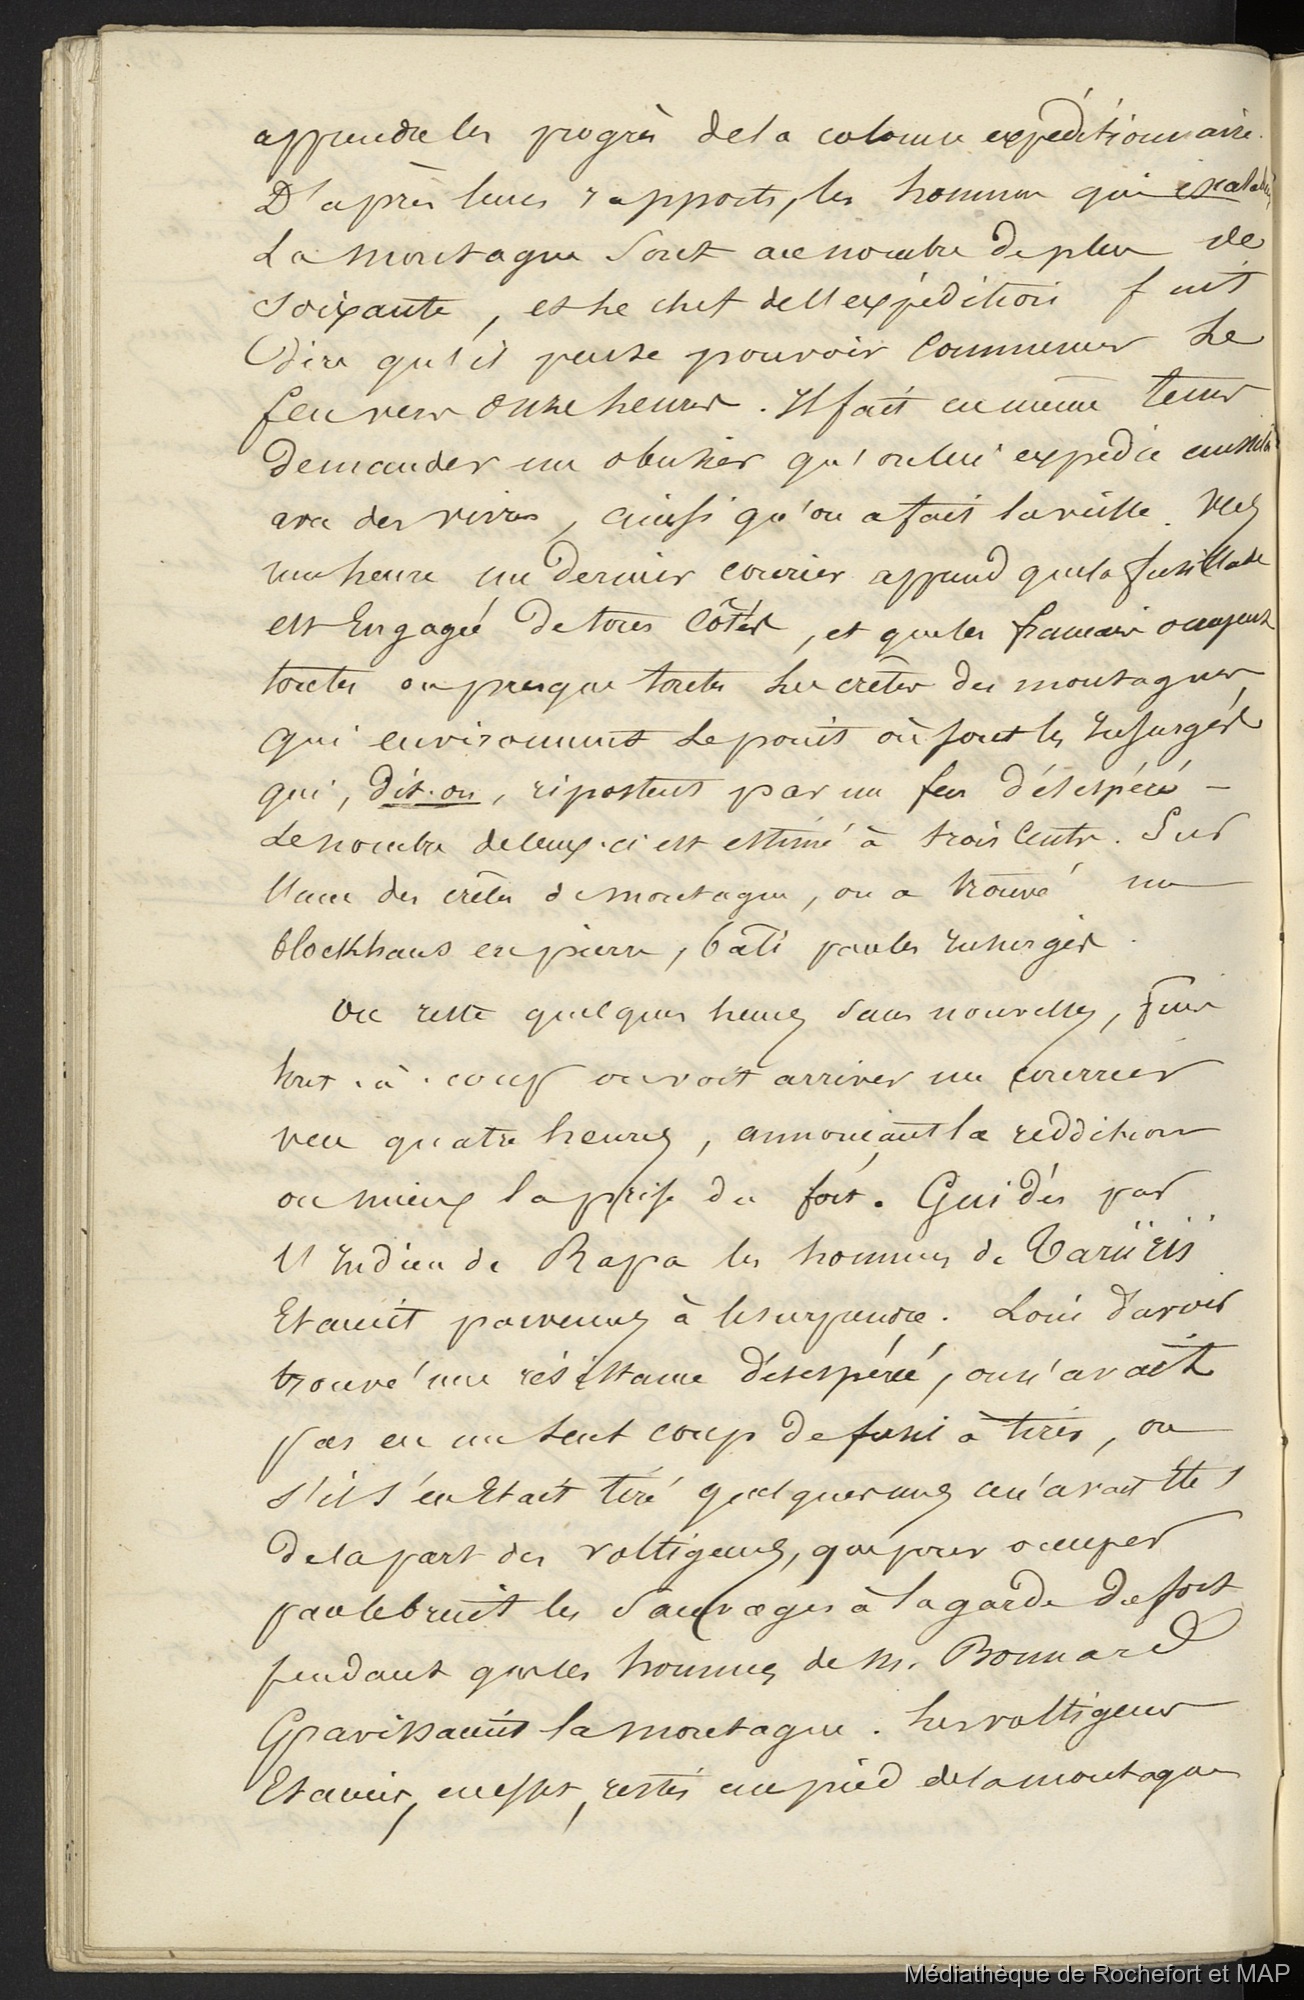 apprendre les progrès de la colonne expéditionnaire.
D'après leurs rapports, les hommes qui
La montagne sont au nombre de plus de
soixante, et le chef de l'expédition fait
dire qu'il pense pouvoir commencer le
feu vers onze heures. Il fait en même tems
demander un obusier qu'on lui expédie aussitôt
avec des vivres, ainsi qu'on a fait la veille. Vers
une heure un dernier courrier apprend que la fusillade
est Engagée de tous côtés, et que les français occupent
toutes ou presque toutes les crêtes des montagnes
qui environnent le point où sont les Insurgés
qui, dit-on, ripostent par un feu désespéré -
Le nombre de ceux-ci est estimé à trois cents. Sur
l'une des crêtes de montagne, on a trouvé un
blockhaus en pierre, bâti par les Insurgés.
On reste quelques heures sans nouvelles, puis
tout-à-coup on voit arriver un courrier
vers quatre heures, annonçant la reddition
ou mieux la prise du fort. Guidés par
l'Indien de Rapa les hommes de Tariirii
Etaient parvenus à les surprendre. Loin d'avoir
trouvé une résistance désespérée, on n'avait
pas eu un seul coup de fusil à tirer, ou
s'il s'en Etait tiré quelques uns ce n'avait été
de la part des voltigeurs, que pour occuper
par le bruit les sauvages à la garde du fort
pendant que les hommes de M. Bonnard
Gravissaient la montagne. Les voltigeurs
Etaient, en effet, restés au pied de la montagne
Médiathèque de Rochefort et MAP